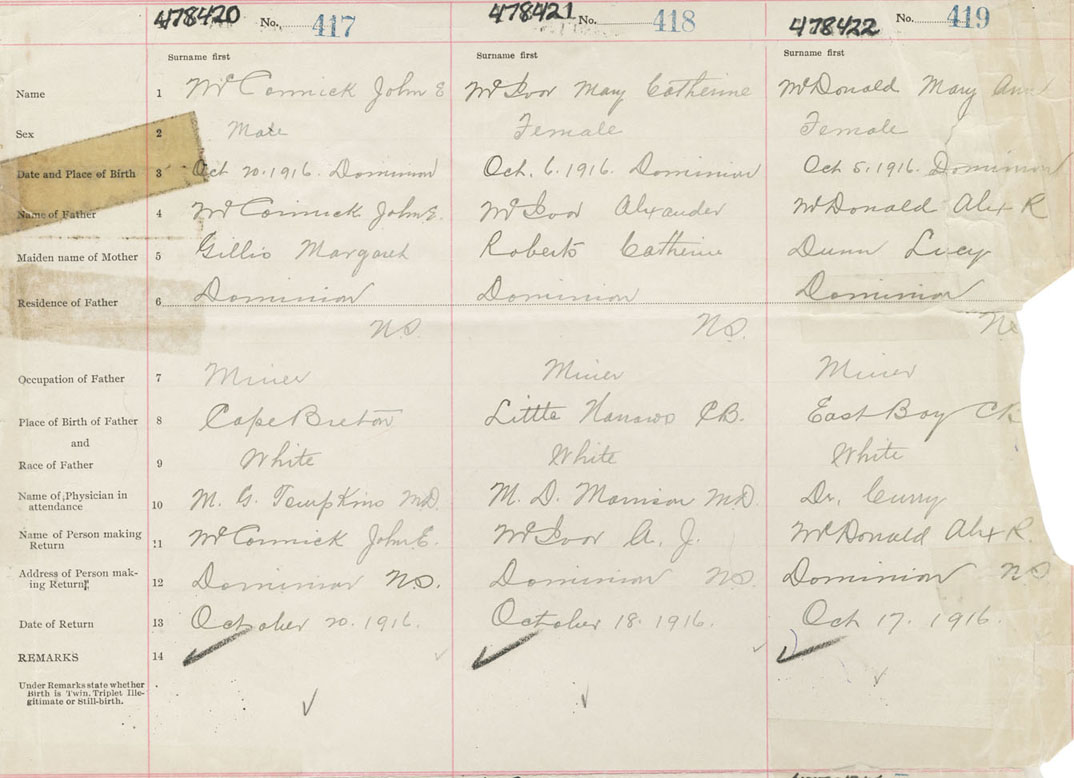 478420 No. 417 478421 No. 418 478422 No. 419
Surname first Surname first Surname first
Name 1 McCormick John E McIvor Mary Catherine McDonald Mary Ann
Sex 2 Male Female Female
Date and Place of Birth 3 Oct 20. 1916. Dominion Oct. 6. 1916. Dominion Oct 5. 1916. Dominion
Name of Father 4 McCormick John E. McIvor Alexander McDonald Alex R
Maiden name of Mother 5 Gillis Margaret Roberts Catherine Dunn Lucy
Residence of Father 6 Dominion Dominion Dominion
N.S. N.S.
Occupation of Father 7 Miner Miner Miner
Place of Birth of Father 8 Cape Breton Little Narrows C.B. East Bay CB
and
Race of Father 9 White White White
Name of Physician in
attendance 10 M. G. Tompkins M.D. M. D. Morrison M.D. Dr. Curry
Name of Person making
Return 11 McCormick John E. McIvor A. J. McDonald Alex R.
Address of Person mak-
ing Return 12 Dominion N.S. Dominion N.S. Dominion N.S.
Date of Return 13 October 20. 1916. October 18. 1916. Oct 17. 1916.
REMARKS 14
Under Remarks state whether
Birth is Twin, Triplet Ille-
gitimate or Still-birth.